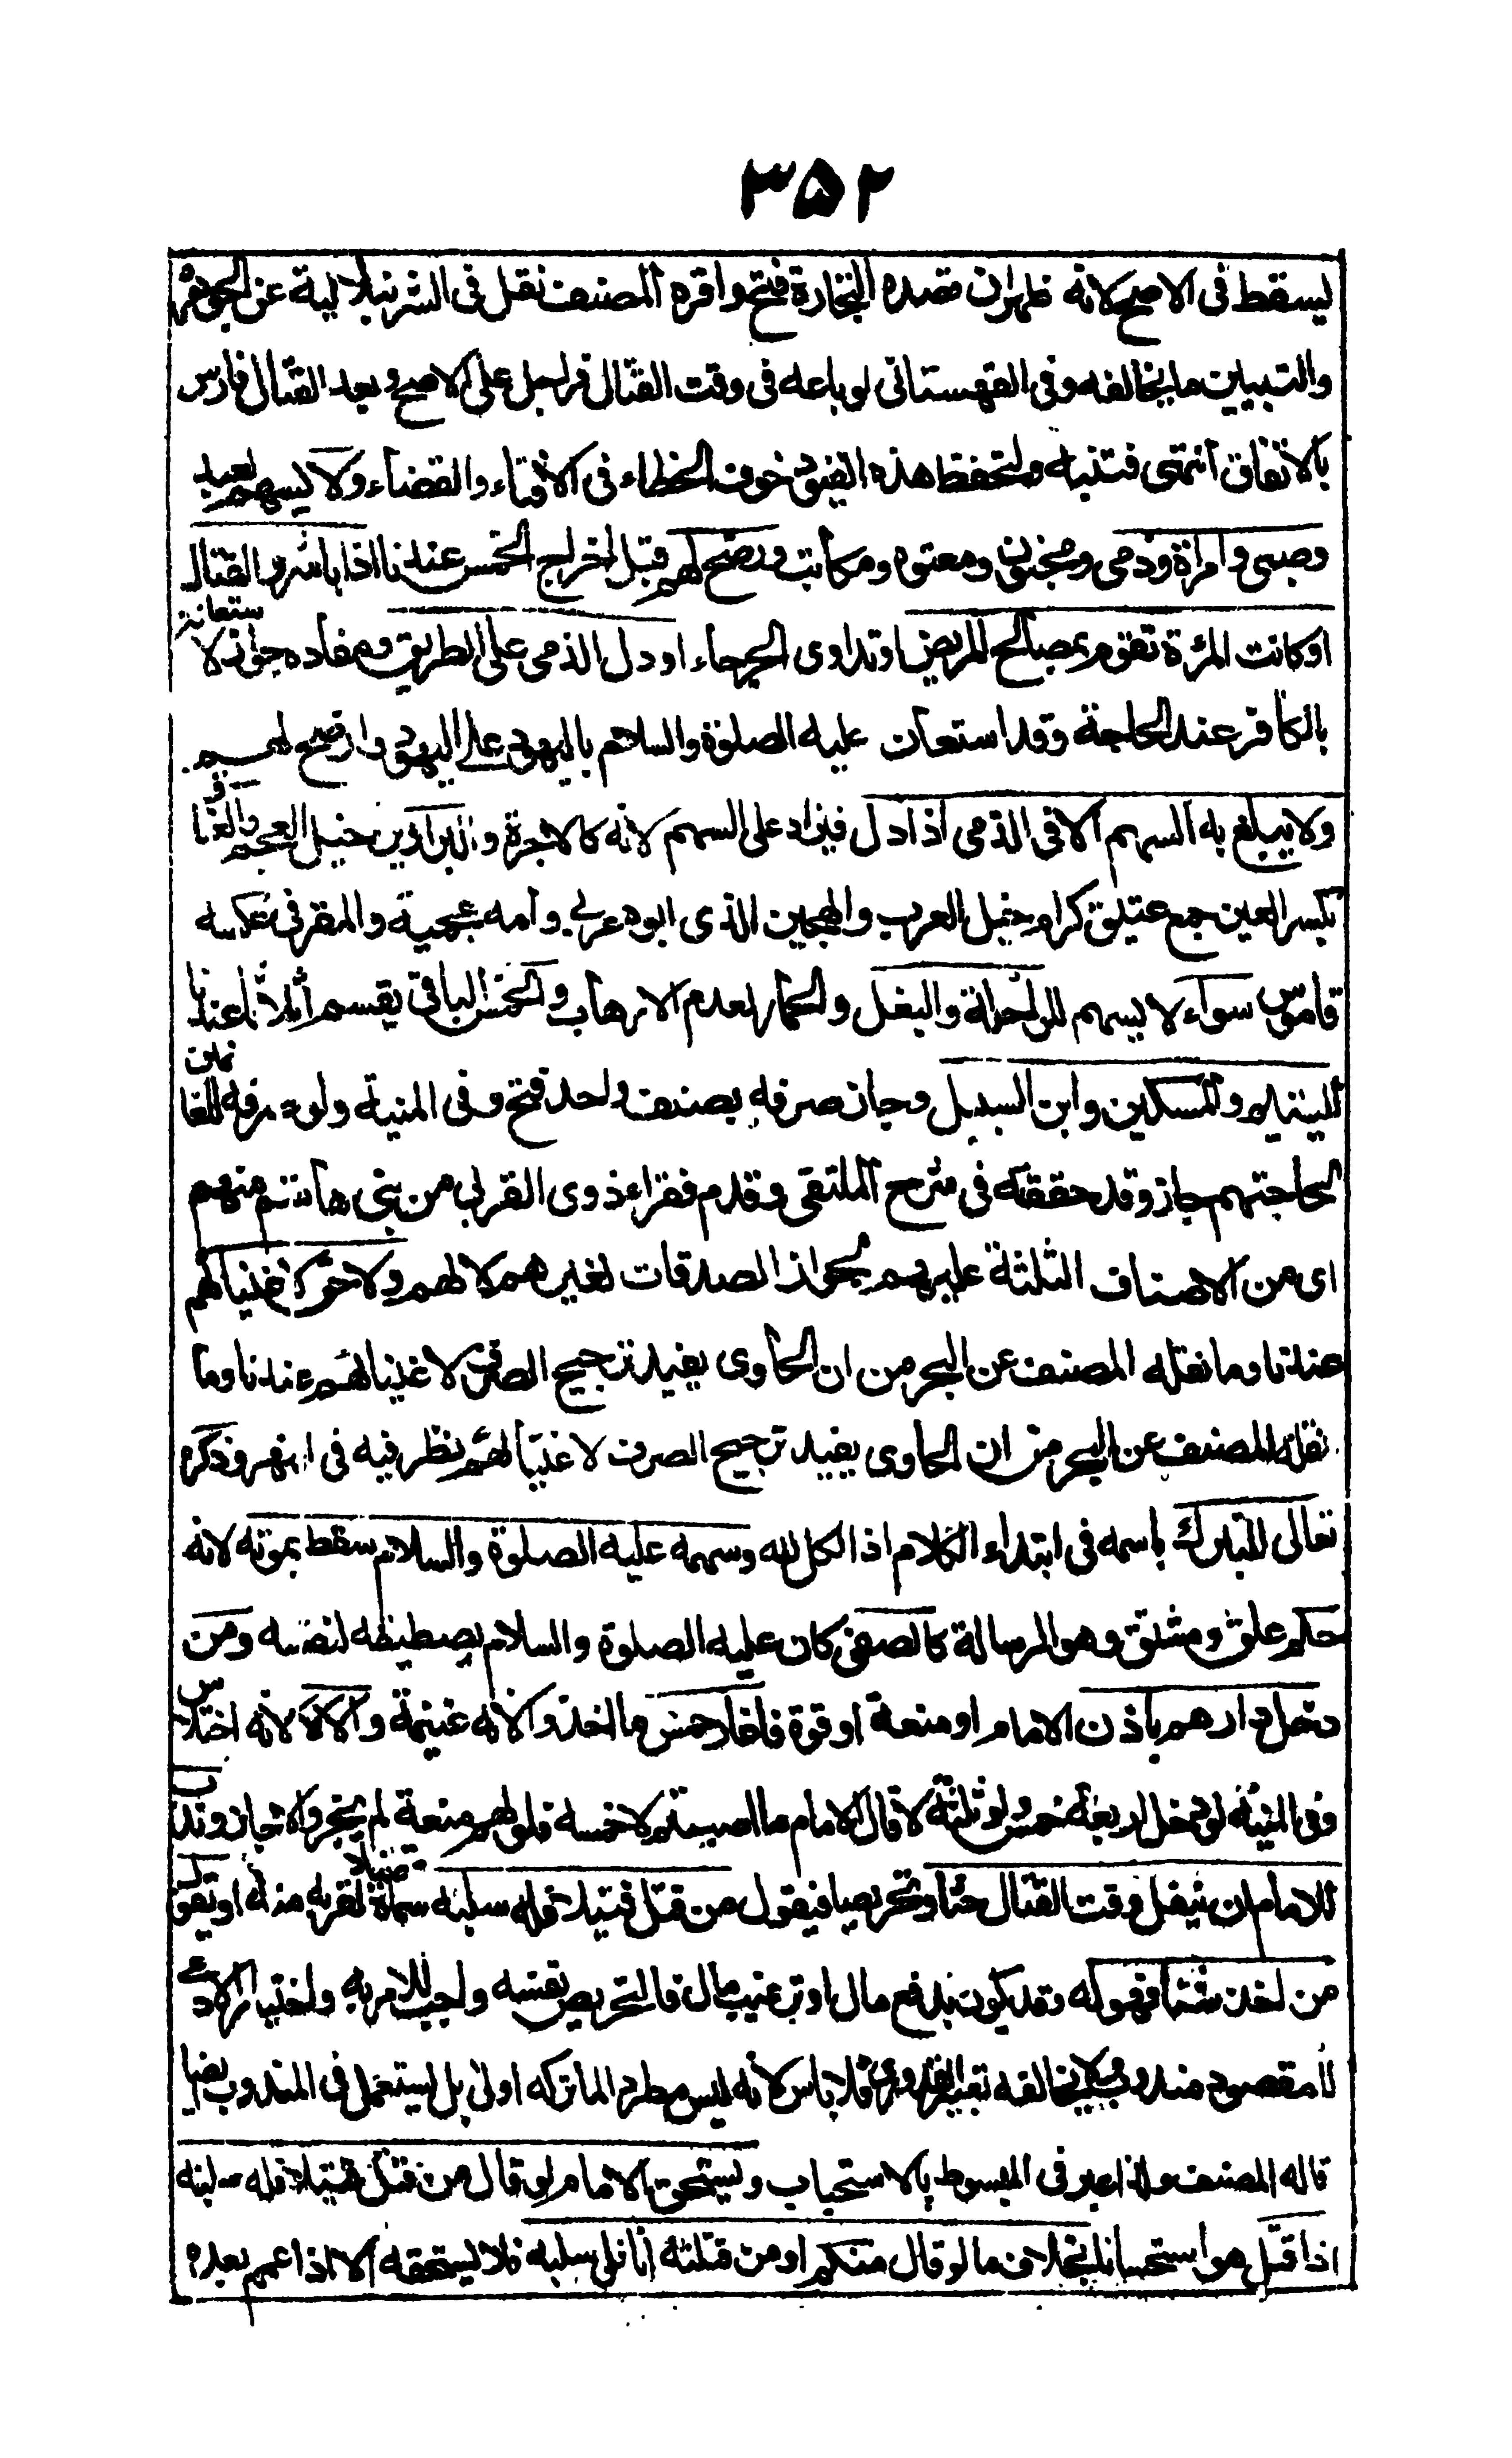 ۳۵۲
ليسقط فى الاصح لانه ظهر ان قصده التجارة فتح واقره المصنف نقل فى الشرنبلالية عن الجوهرة
والتبيين ما يخالفه وفى القهستانى لو باعه فى وقت القتال فراجل على الاصح وبعد القتال فارس
بالاتفاق انتهى فتنبه ولتحفظ هذه القيود خوف الخطاء فى الافتاء والقضاء ولا يسهم لعبد
وصبى وامراة وذمى ومجنون ومعتوه ومكاتب ورضخ لهم قبل اخراج الخمس عندنا اذا باشروا القتال
او كانت المرءة تقوم بمصالح المريض او تداوى الجرحاء او دل الذمى على الطريق ومفاده جواز الاستعانة
بالكافر عند الحاجة وقد استعان عليه الصلوة والسلام باليهود على اليهود وارضخ لهم
ولا يبلغ به السهم الا فى الذمى اذا دل فيزاد على السهم لانه كالاجرة والبراذين خيل العجم والعتاق
بكسر العين جمع عتيق كرام خيل العرب والهجين الذى ابوه عربى وامه عجمية والمقرف عكسه
قاموس سواء لا يسهم للراحلة والبغل والحمار لعدم الارهاب والخمس الباقى يقسم اثلاثا عندنا
لليتيم والمسكين وابن السبيل وجاز صرفه بصنف واحد فتح وفى المنية ولو صرفه للغانمين
لحاجتهم جاز وقد حققته فى شرح الملتقى وقدم فقراء ذوى القربى من بنى هاشم منهم
اى من الاصناف الثلثة عليهم لجواز الصدقات لغيرهم لا لهم ولا حق لاغنيائهم
عندنا وما نقله المصنف عن البحر من ان الحاوى يفيد ترجيح الصرف لاغنيائهم عندنا وما
نقله المصنف عن البحر من ان الحاوى يفيد ترجيح الصرف لاغنيائهم نظر فيه فى النهر وذكره
تعالى للتبرك باسمه فى ابتداء الكلام اذ الكل لله وسهمه عليه الصلوة والسلام سقط بموته لانه
حكم علق بمشتق وهو الرسالة كالصفى كان عليه الصلوة والسلام يصطفيه لنفسه ومن
دخل دارهم باذن الامام او منعة او قوة فاغار خمس ما اخذوا لانه غنيمة والا لا لانه اختلاس
وفى المنية لو دخل اربعة خمس ولو ثلثة لا قال الامام ما اصبتم لا خمسه فلو لهم منعة لم يجز والا جاز وندب
للامام ان ينفل وقت القتال حثا وتحريضا فيقول من قتل قتيلا فله سلبه سماه قتيلا لقربه منه او يقول
من اخذ شيئا فهو له وقد يكون بدفع مال او ترغيب مال فالتحريض نفسه واجب للامر به واختيار الادعى
للمقصود مندوب ولا يخالفه تعبير القدورى فلا باس لانه ليس مطردا لما تركه اولى بل يستعمل فى المندوب ايضا
قاله المصنف ولذا عبر فى المبسوط بالاستحباب ويستحق الامام لو قال من قتل قتيلا فله سلبه
اذا قتل هو استحسانا بخلاف ما لو قال منكم او من قتلته انا فلى سلبه فلا يستحقه الا اذا عمم بعده